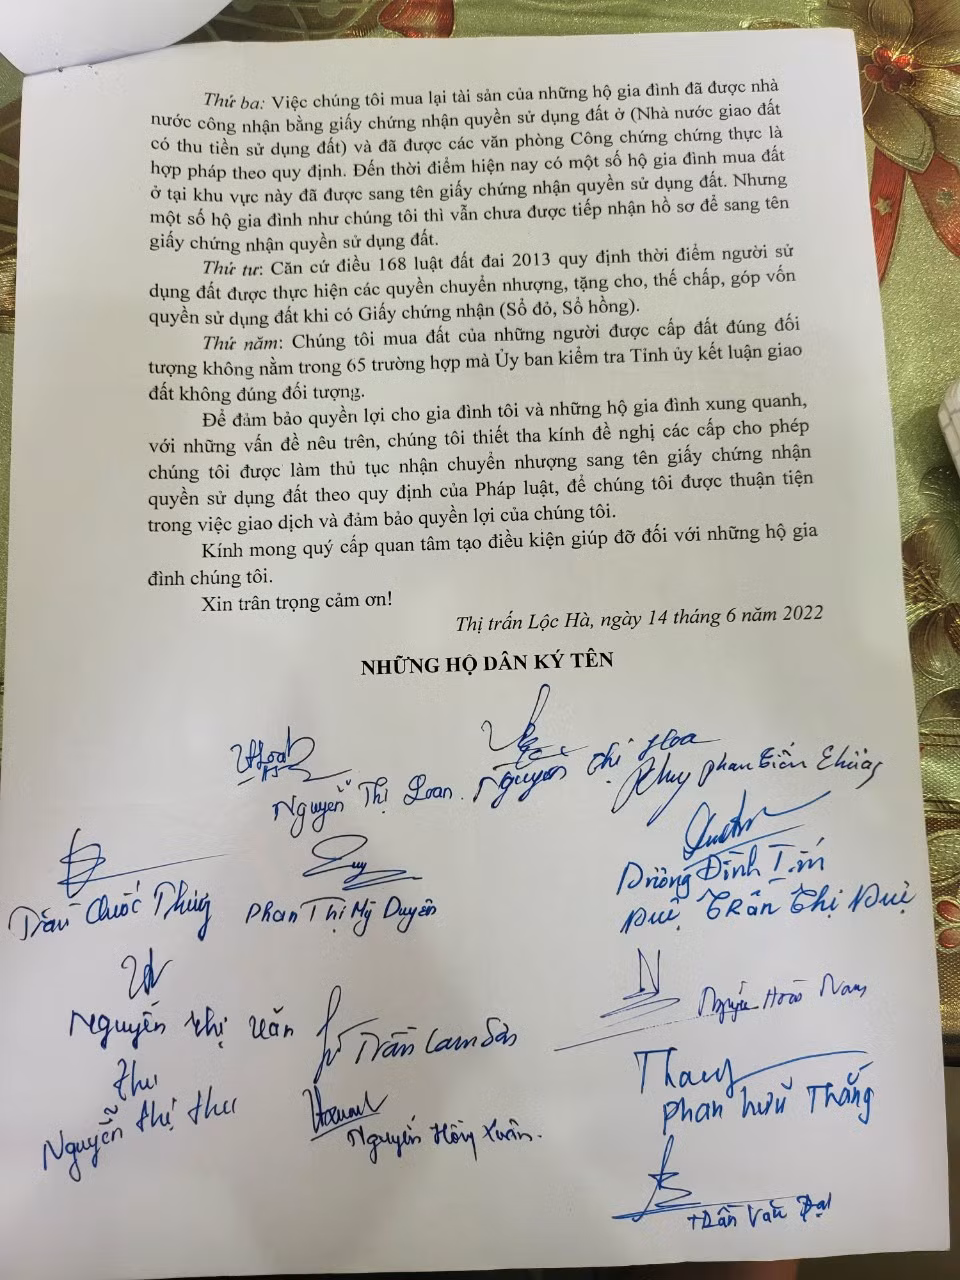 Thứ ba: Việc chúng tôi mua lại tài sản của những hộ gia đình đã được nhà
nước công nhận bằng giấy chứng nhận quyền sử dụng đất ở (Nhà nước giao đất
có thu tiền sử dụng đất) và đã được các văn phòng Công chứng chứng thực là
hợp pháp theo quy định. Đến thời điểm hiện nay có một số hộ gia đình mua đất
ở tại khu vực này đã được sang tên giấy chứng nhận quyền sử dụng đất. Nhưng
một số hộ gia đình như chúng tôi thì vẫn chưa được tiếp nhận hồ sơ để sang tên
giấy chứng nhận quyền sử dụng đất.
Thứ tư: Căn cứ điều 168 luật đất đai 2013 quy định thời điểm người sử
dụng đất được thực hiện các quyền chuyển nhượng, tặng cho, thế chấp, góp vốn
quyền sử dụng đất khi có Giấy chứng nhận (Sổ đỏ, Sổ hồng).
Thứ năm: Chúng tôi mua đất của những người được cấp đất đúng đối
tượng không nằm trong 65 trường hợp mà Ủy ban kiểm tra Tỉnh ủy kết luận giao
đất không đúng đối tượng.
Để đảm bảo quyền lợi cho gia đình tôi và những hộ gia đình xung quanh,
với những vấn đề nêu trên, chúng tôi thiết tha kính đề nghị các cấp cho phép
chúng tôi được làm thủ tục nhận chuyển nhượng sang tên giấy chứng nhận
quyền sử dụng đất theo quy định của Pháp luật, để chúng tôi được thuận tiện
trong việc giao dịch và đảm bảo quyền lợi của chúng tôi.
Kính mong quý cấp quan tâm tạo điều kiện giúp đỡ đối với những hộ gia
đình chúng tôi.
Xin trân trọng cảm ơn!
Thị trấn Lộc Hà, ngày 14 tháng 6 năm 2022
NHỮNG HỘ DÂN KÝ TÊN
Nguyễn Thị Loan.
Nguyễn Thị Hoa
Phan Tiến Chũng
Trần Quốc Thùy
Phan Thị Mỹ Duyên
Dương Đình Tín
Duệ Trần Thị Duệ
Nguyễn Thị Vân
Trần Lam Sơn
Nguyễn Hoài Nam
Thu
Nguyễn Thị Thu
Nguyễn Hồng Xuân.
Thang
Phan Hữu Thắng
Trần Văn Đạt